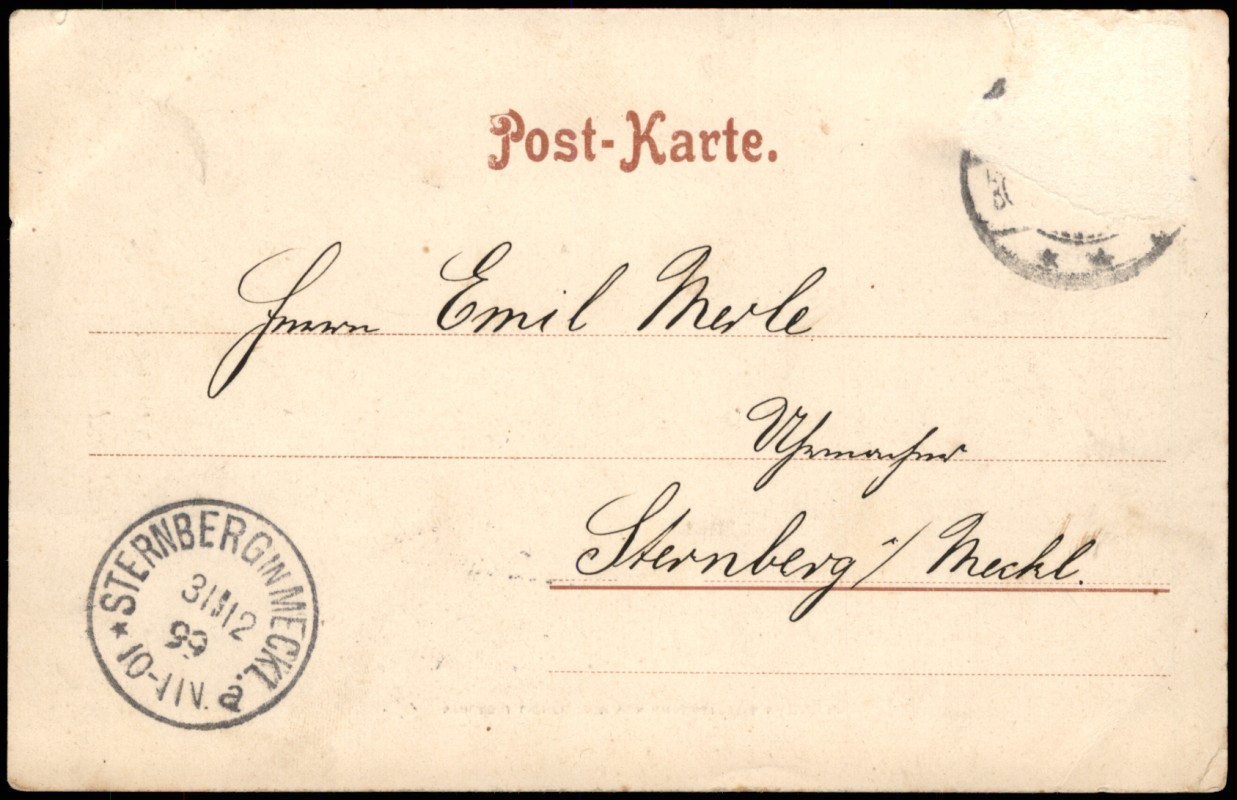 Post-Karte.
Herrn Emil Merle
Uhrmacher
Sternberg i/ Meckl.
STERNBERG IN MECKL.
99
10-11 N. a